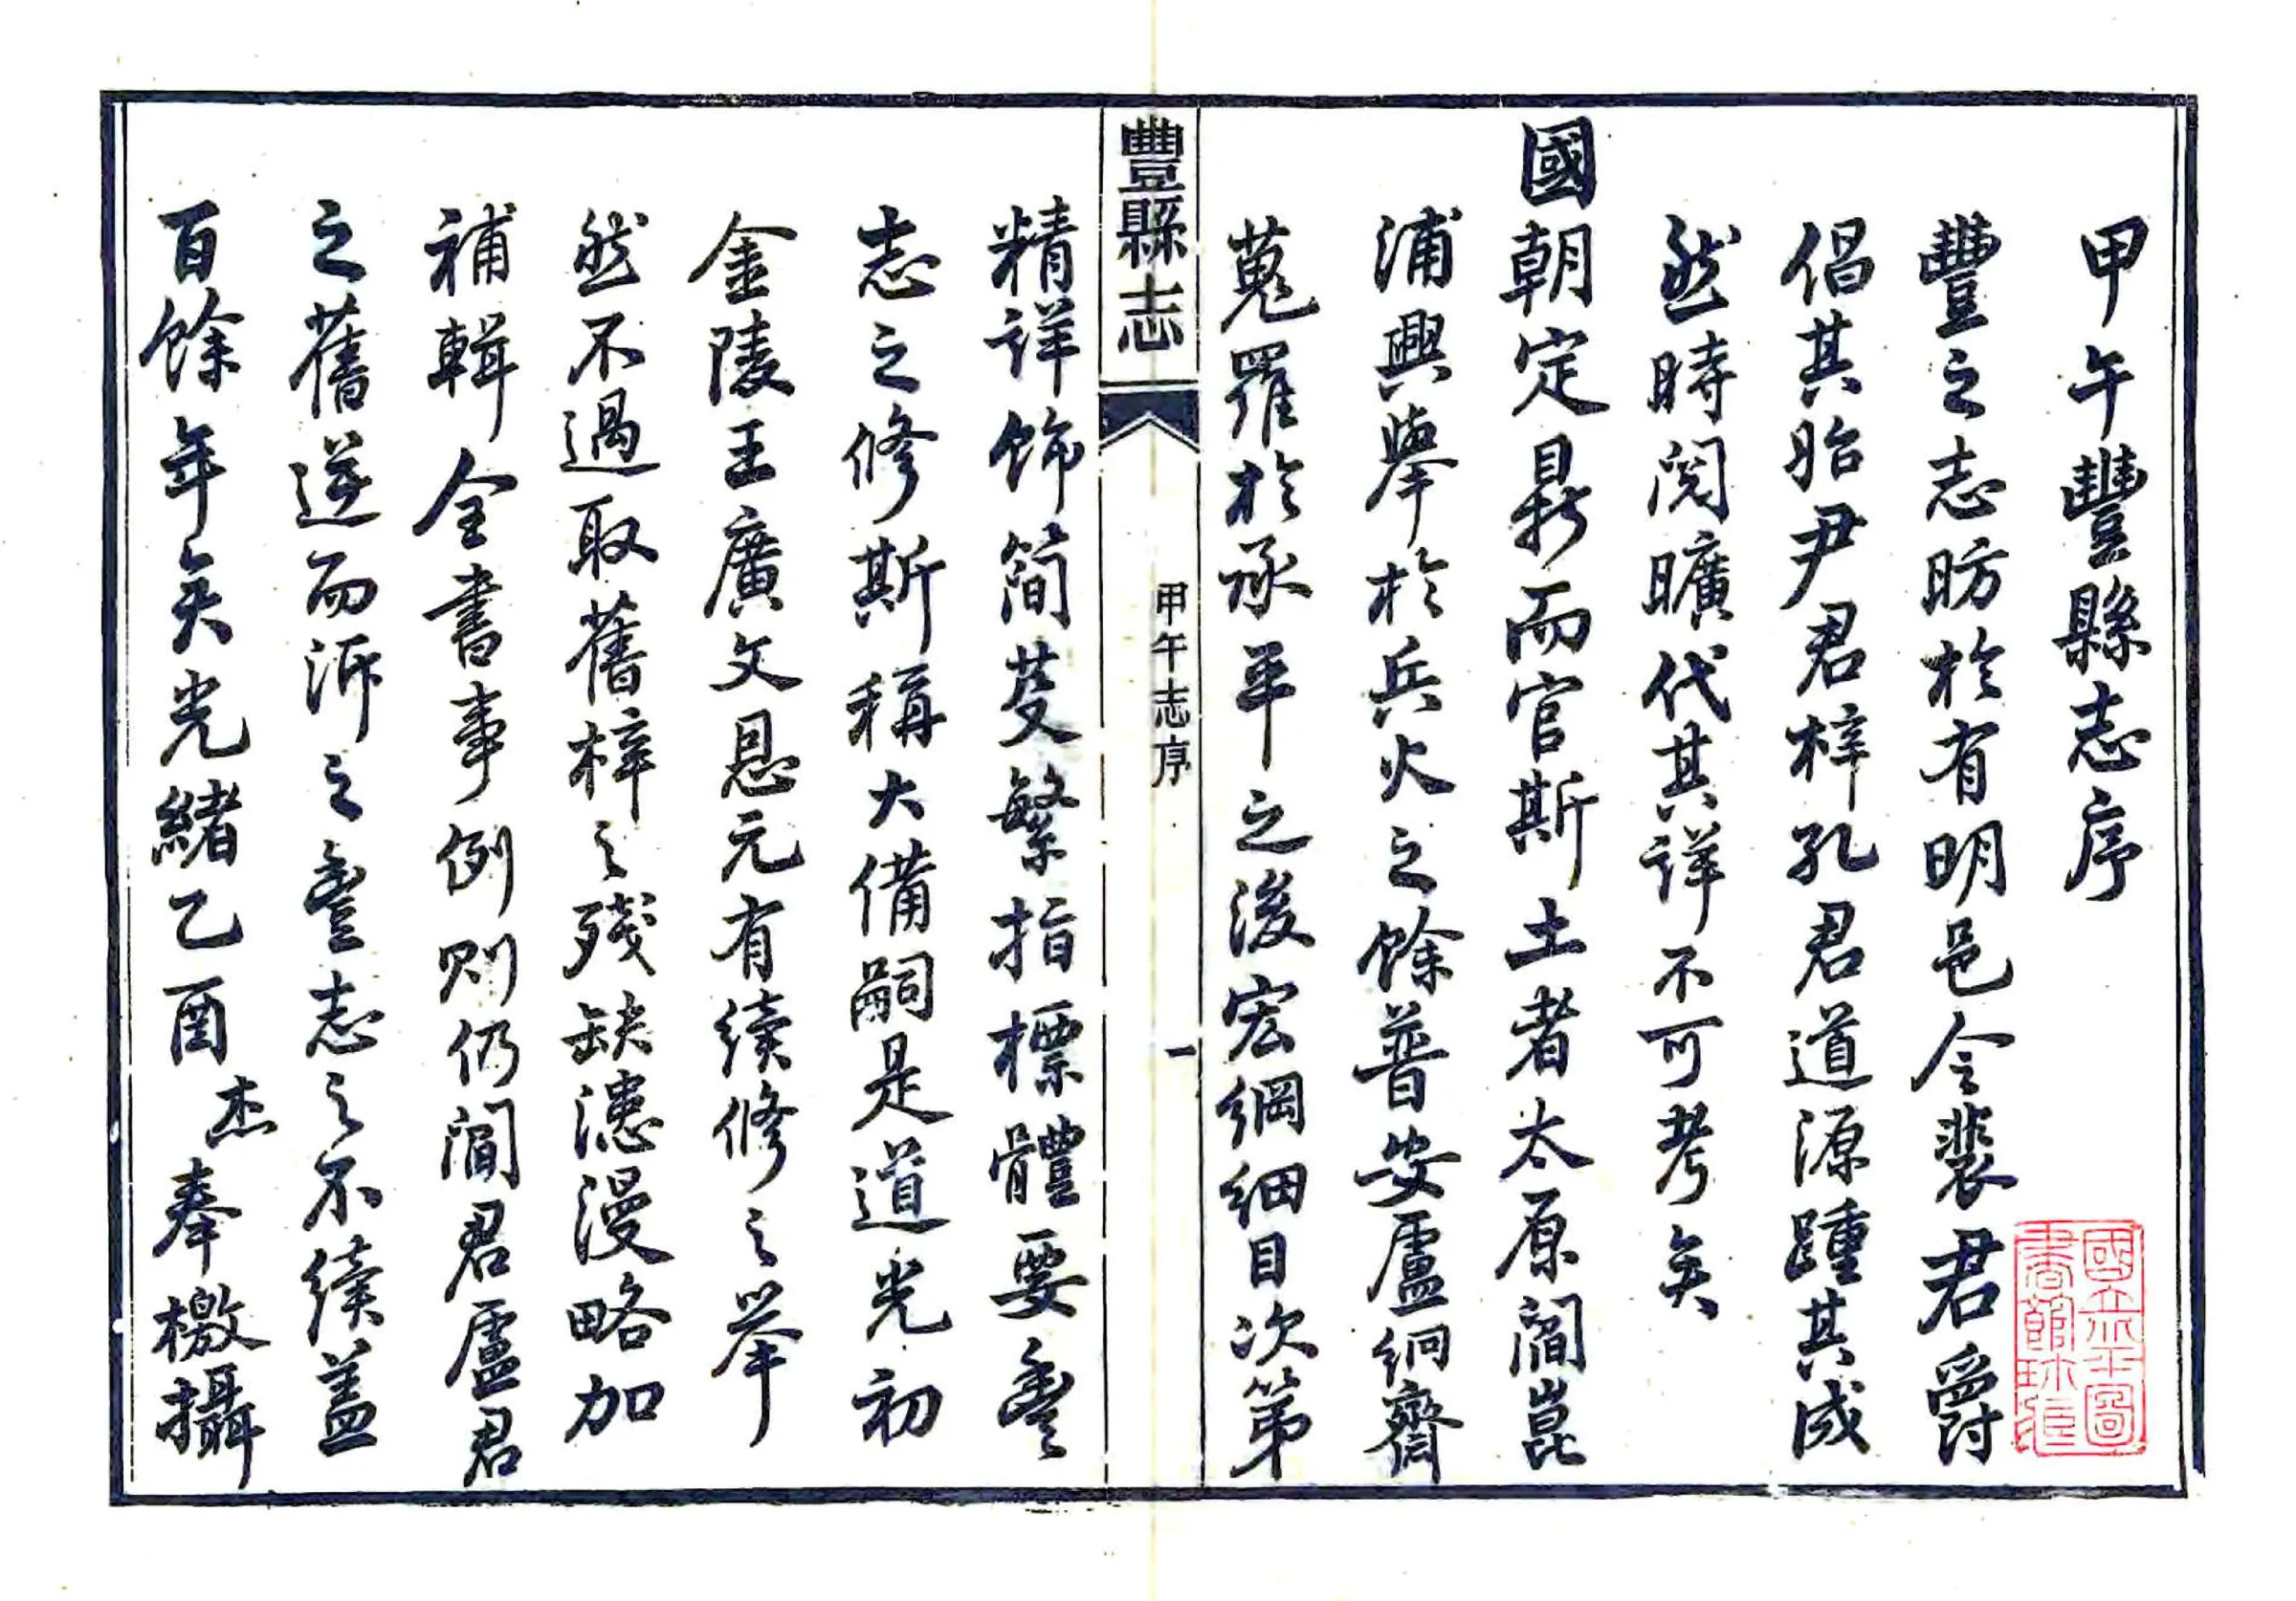 甲午豐縣志序
豐之志昉於有明邑令裴君爵
倡其始尹君梓孔君道源踵其成
然時閱曠代其詳不可考矣
國朝定鼎而官斯土者太原閻崑
浦興舉於兵火之餘普安盧絅齋
蒐羅於承平之後宏綱細目次第
豐縣志
甲午志序
一
精詳飾簡芟繁指標體要豐
志之修斯稱大備嗣是道光初
金陵王廣文恩元有續修之舉
然不過取舊梓之殘缺漶漫略加
補輯全書事例則仍閻君盧君
之舊逆而泝之豐志之不續蓋
百餘年矣光緒乙酉杰奉檄攝
國立北平圖
書館珍藏